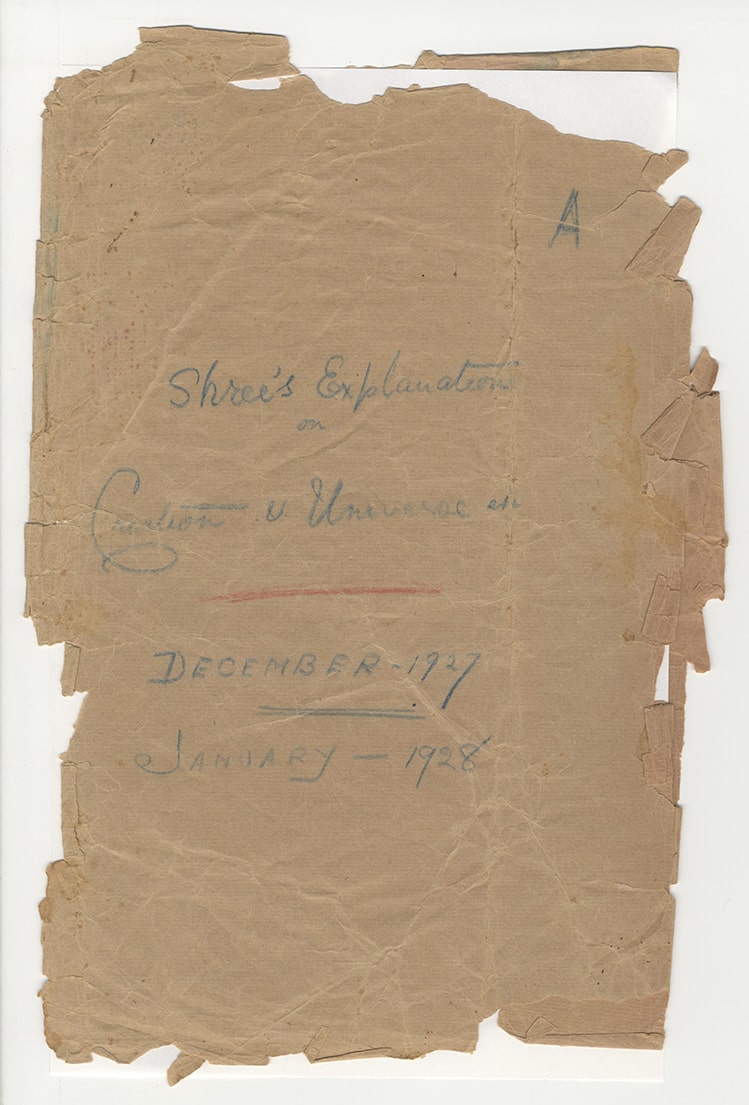 A
Shree's Explanation
on
Creation & Universe
DECEMBER-1927
JANUARY — 1928